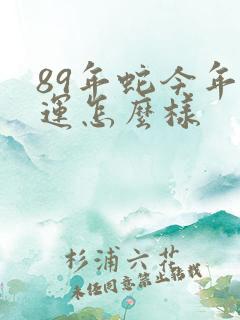 89年蛇今年
運怎麼樣
杉浦六花
未任同意禁止转载